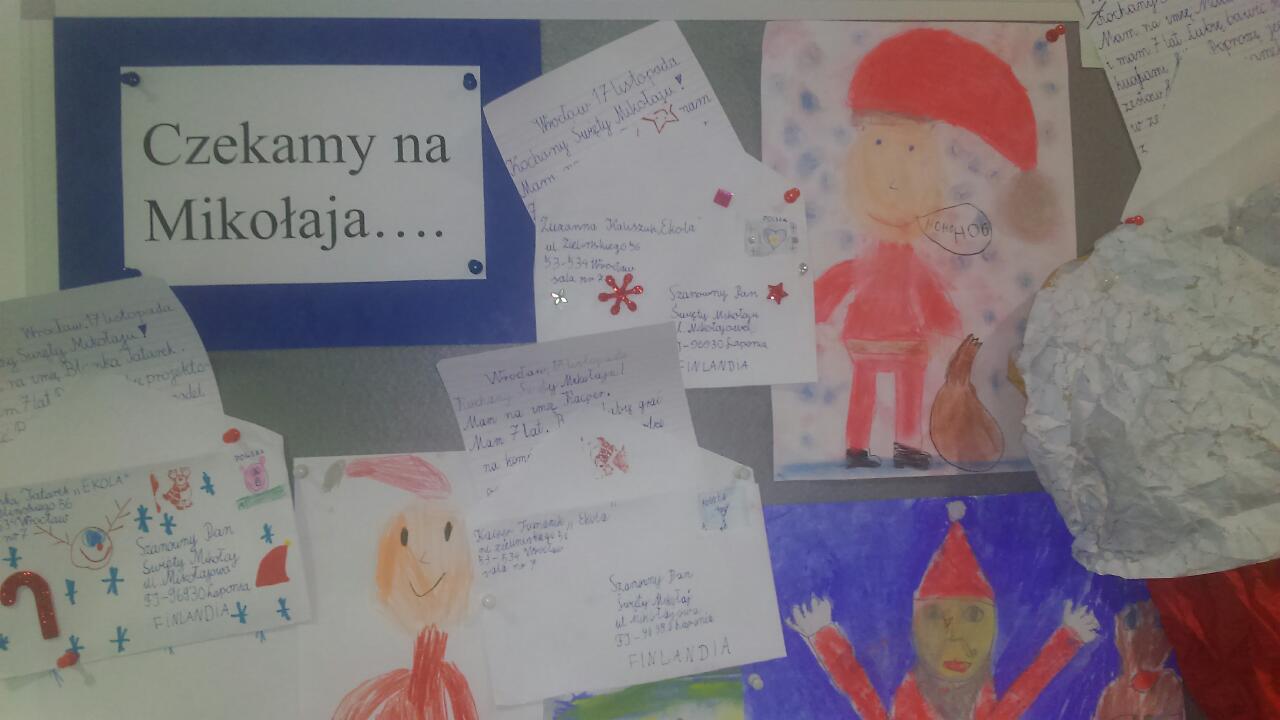 Czekamy na
Mikołaja....
Wrocław 17 listopada
Kochany Święty Mikołaju!
Mam nam
Zuzanna Kaliszuk „Ekola"
ul. Zielińskiego 56
53-534 Wrocław
sala nr 7
POLSKA
Szanowny Pan
Święty Mikołaj
ul. Mikołajowa
FJ-96930 Laponia
FINLANDIA
HOHOHOO
Kochany
Mam na imię
i mam 7 lat. Lubię bawić
Poproszę
Wrocław, 17 listopada
Święty Mikołaju!
na imię Blanka Tatarek.
7 lat
Tatarek „EKOLA"
56
Wrocław
nr 7
POLSKA
Szanowny Pan
Święty Mikołaj
ul. Mikołajowa
FJ-96930 Laponia
FINLANDIA
Wrocław, 17 listopada
Kochany Święty Mikołaju!
Mam na imię Kacper.
Mam 7 lat. grać
na
Kacper „Ekola"
ul. Zielińskiego 56
53-534 Wrocław
sala nr 7
Szanowny Pan
Święty Mikołaj
ul. Mikołajowa
FJ-96930 Laponia
FINLANDIA